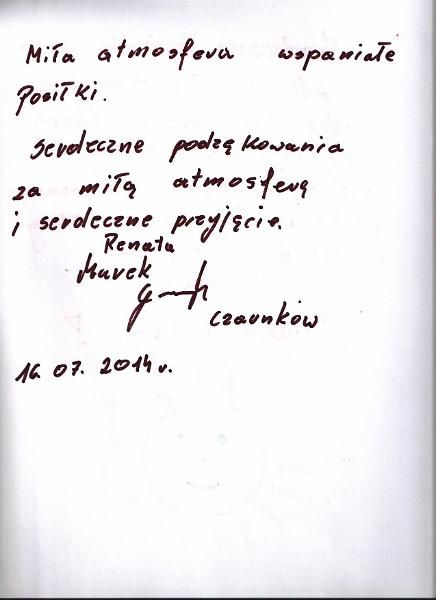 Miła atmosfera wspaniałe
Posiłki.
Serdeczne podzękowania
za miłą atmosferę
i serdeczne przyjęcie.
Renata
Marek
Czarnków
16 07. 2014 r.